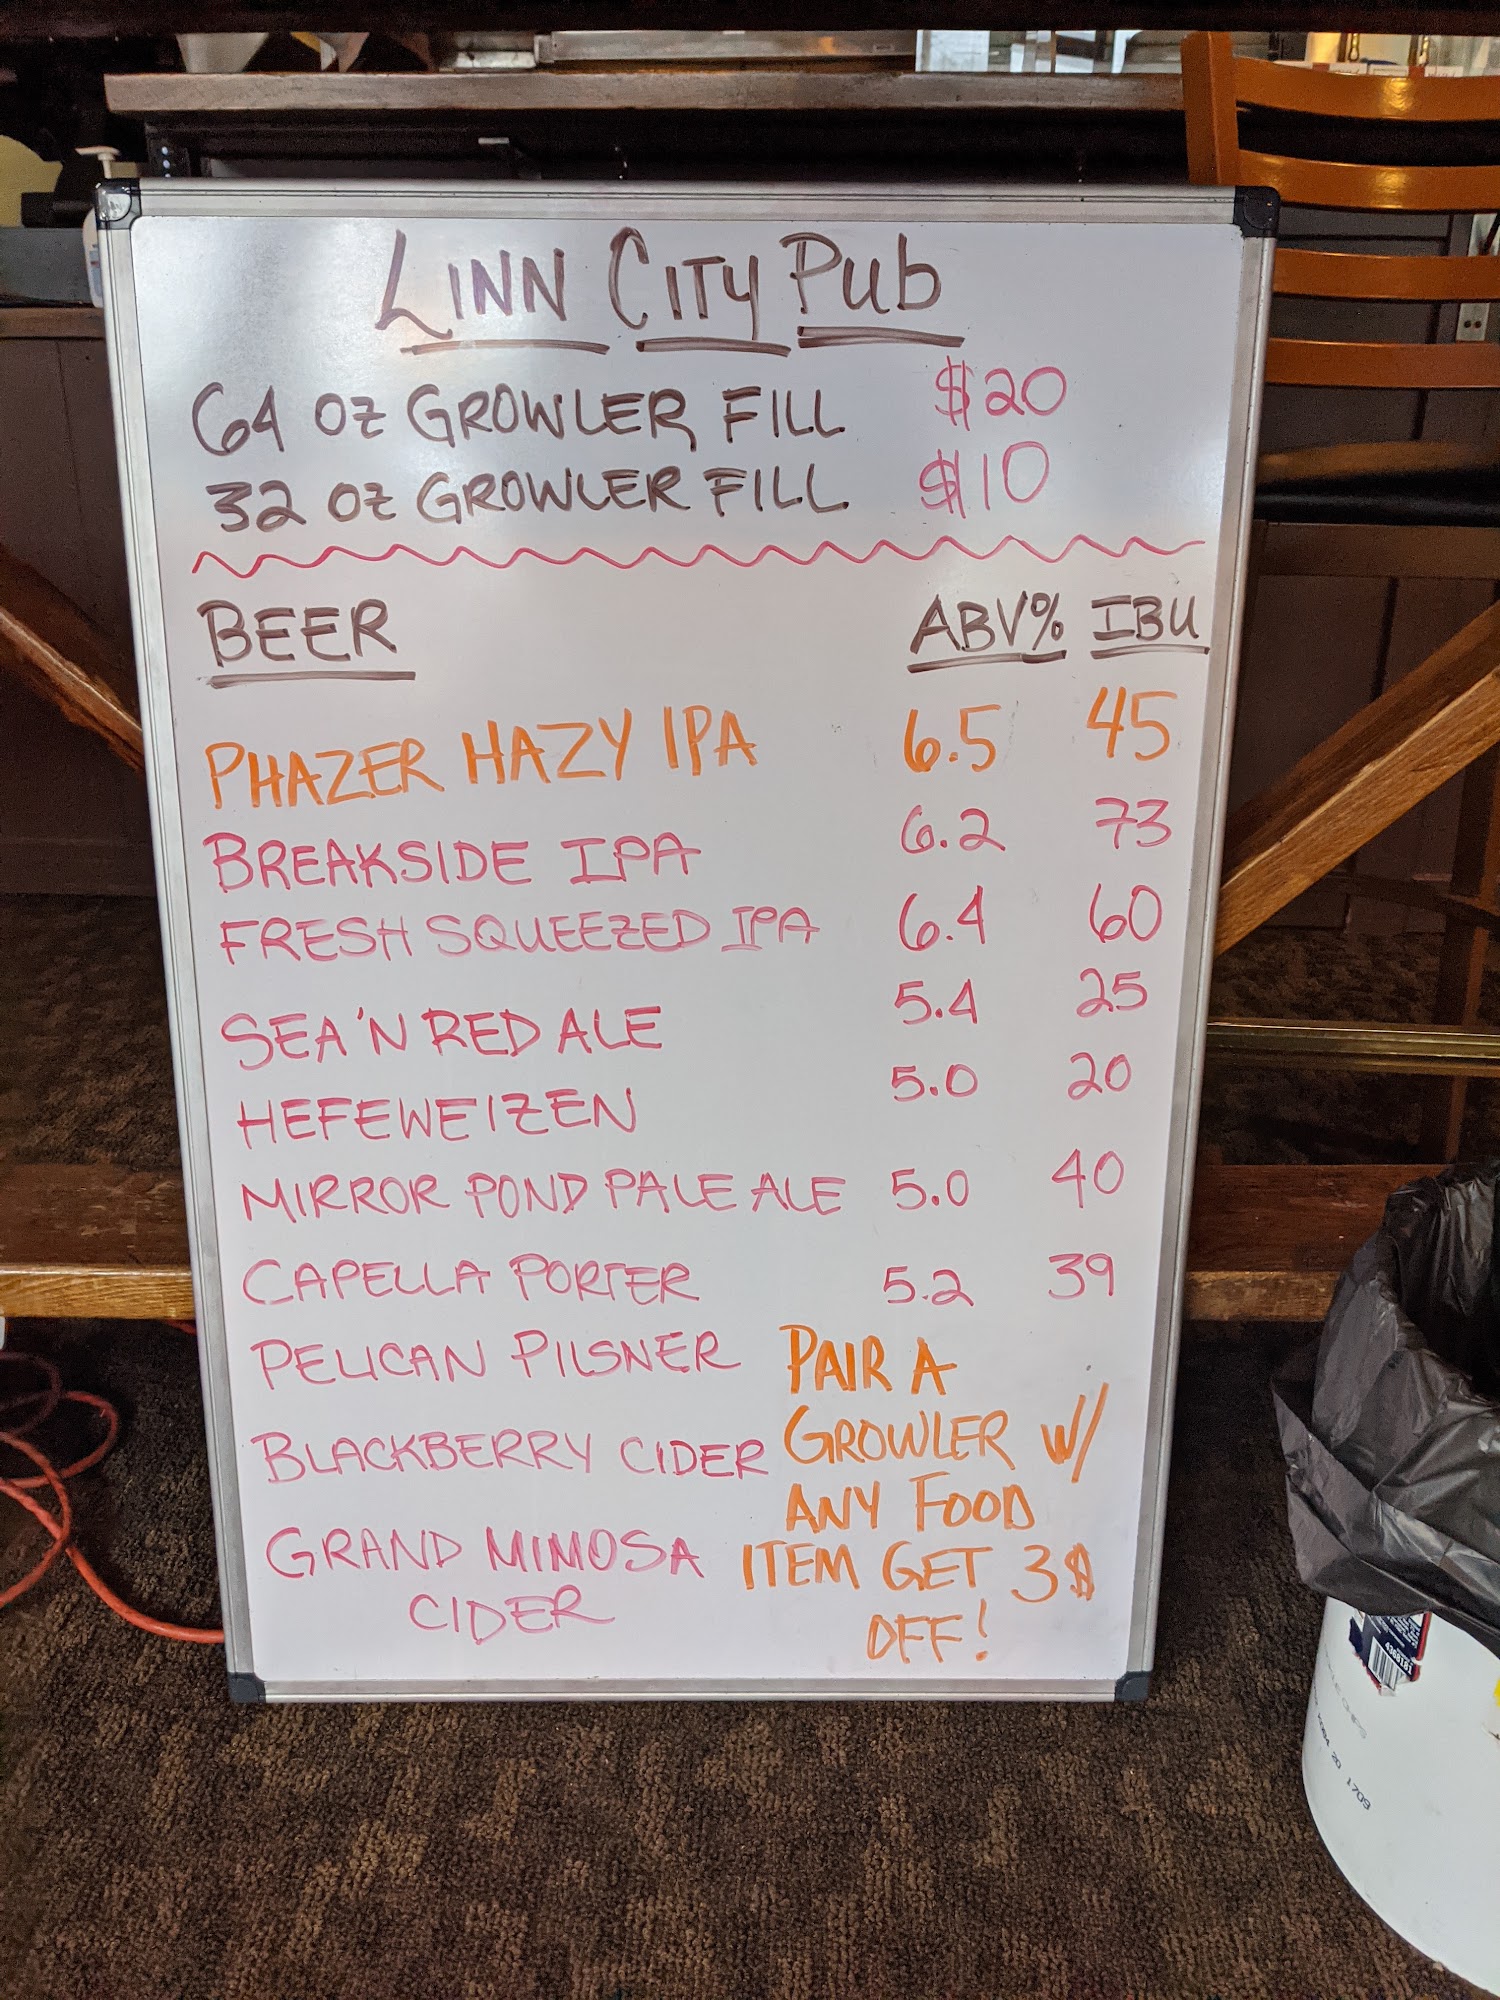 LINN CITY PUB
64 OZ GROWLER FILL $20
32 OZ GROWLER FILL $10
BEER ABV% IBU
PHAZER HAZY IPA 6.5 45
BREAKSIDE IPA 6.2 73
FRESH SQUEEZED IPA 6.4 60
SEA'N RED ALE 5.4 25
HEFEWEIZEN 5.0 20
MIRROR POND PALE ALE 5.0 40
CAPELLA PORTER 5.2 39
PELICAN PILSNER
BLACKBERRY CIDER
GRAND MIMOSA
CIDER
PAIR A
GROWLER W/
ANY FOOD
ITEM GET 3$
OFF!
4368161
2084 20 1709